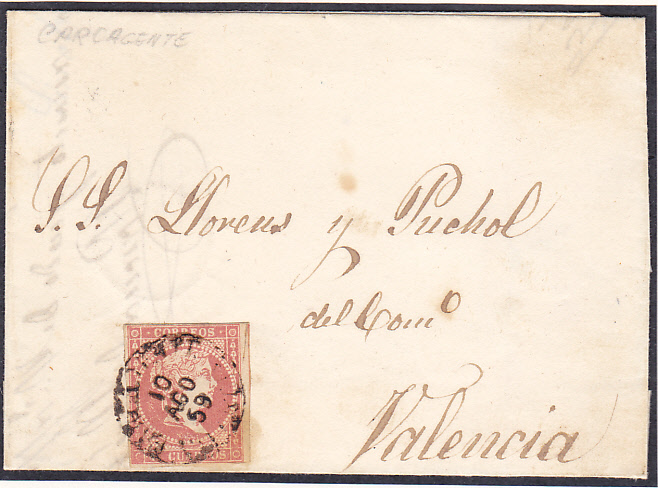 CARCAGENTE
S. S. Llorens y Puchol
del Comº
Valencia
CORREOS
10
AGO
59